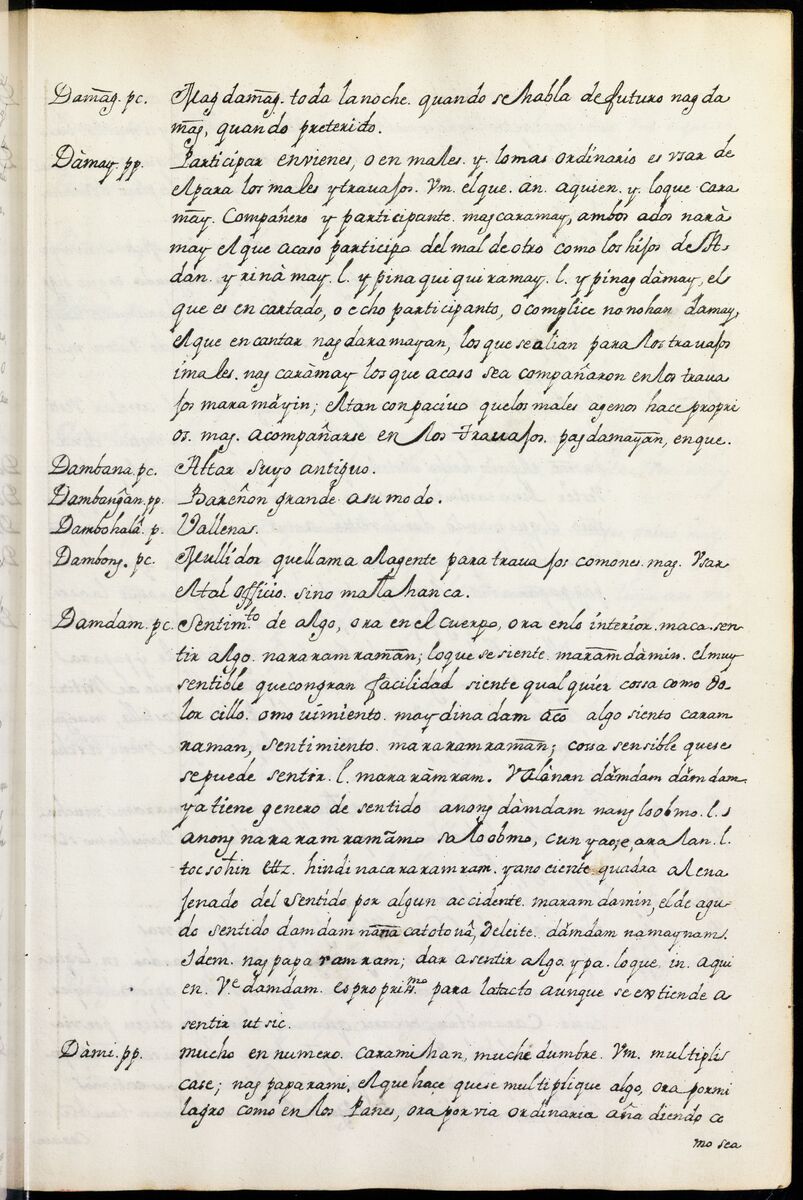 Damãg. pc. Magdamãg. toda lanoche. quando se habla de futuro nagda
mãg, quando preterido.
Dàmay. pp. Participar envienes, o en males. y. lo mas ordinario es vsar de
el para los males y travajos. Vm. elque. an. aquien. y. loque cara
mãy. Compañero y participante magcaramay, ambos ados narà
may el que acaso participo del mal de otro como los hijos de A-
dan. y rinàmay. l. y pinaquiquiramay. l. y pinagdàmay, el
que es encartado, o echo participante, o complice nonohan damay,
el que encantar nagdaramayan, los que se alian para los travajos
i males. nagcaràmay los que acaso sea compañaron en los trava
jos maramãyin; el tan conpacivo que los males agenos hace propri
os. mag. acompañarse en los travajos. pagdamayãn, enque.
Dambana. pc. Altar suyo antiguo.
Dambangân. pp. Bareñon grande a su modo.
Dambohalâ. p. Vallenas.
Dambong. pc. Mullidor que llama alagente para travajos comones. mag. Vsar
el tal officio. sino matlahanca.
Damdam. pc. Sentimto de algo, ora en el cuerpo, ora enlo interior. maca. sen-
tir algo. nararamramãn; loque se siente. maramdàmin. el muy
sentible que con gran facilidad siente qualquier cossa como do
lorcillo. o movimiento. may dinadam aco algo siento caram
raman, sentimiento. mararamramãn; cossa sensible quese
se puede sentir. l. mararàmram. Valànan dãmdam dãmdam
ya tiene genero de sentido anong dàmdam nang loobmo. l.
anong nararamramãmo sa loobmo, cun
tocsohin ettz. hindi nacararamram. yano ciente quadra al ena
jenado del sentido por algun accidente. maramdamin, el de agu-
do sentido damdam catotouâ, Deleite. dãmdam namaynam.
Idem. nagpaparamram; dar a sentir algo. ypa. loque. in. aqui
en. Ve damdam. es proprimo para latacto aunque se extiende a
sentir ut sic.
Dàmi. pp. mucho en numero. caramihan, muchedumbre. Vm. multipli
case; nagpaparami, el que hace quese multiplique algo, ora por mi
lagro como en los Panes, ora por via ordinaria añadiendo co
mo sea